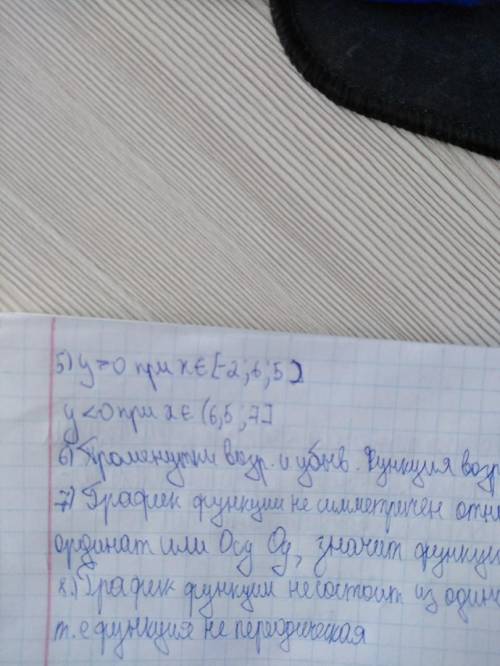 5) y>0 при x∈[-2; 6,5)
y<0 при x∈(6,5; 7]
6) Промежутки возр. и убыв. Функция возр
7) График функции не симметричен отн
ординат или Осу Оу, значит функци
8.) График функции не состоит из один
т.е функция не периодическая